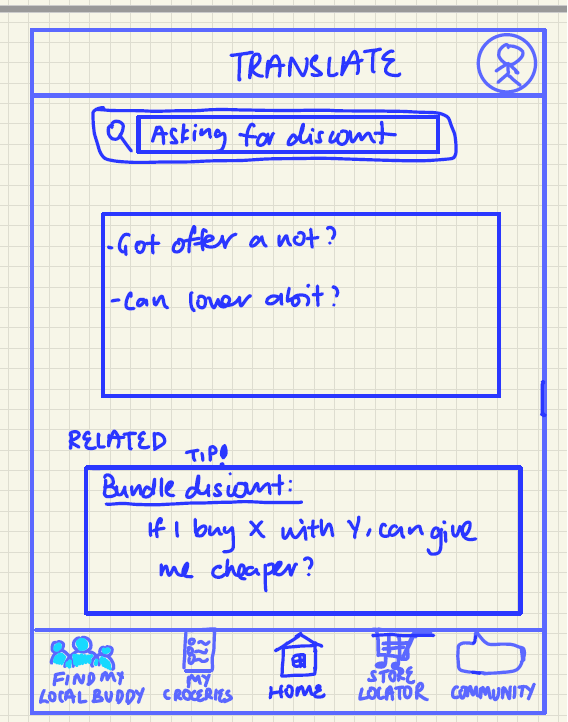 TRANSLATE
Asking for discount
-Got offer a not?
-Can lower abit?
RELATED
TIP!
Bundle discount:
If I buy X with Y, can give
me cheaper?
FIND MY
LOCAL BUDDY
MY
GROCERIES
HOME
STORE
LOCATOR
COMMUNITY